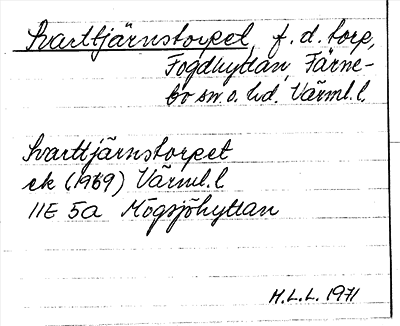 Svarttjärnstorpet, f.d. torp,
Fogdhyttan, Färne-
bo sn. o. hd. Värml. l.
Svarttjärnstorpet
ek (1969) Värml. l
11E 5a Mögsjöhyttan
H.L.L. 1971